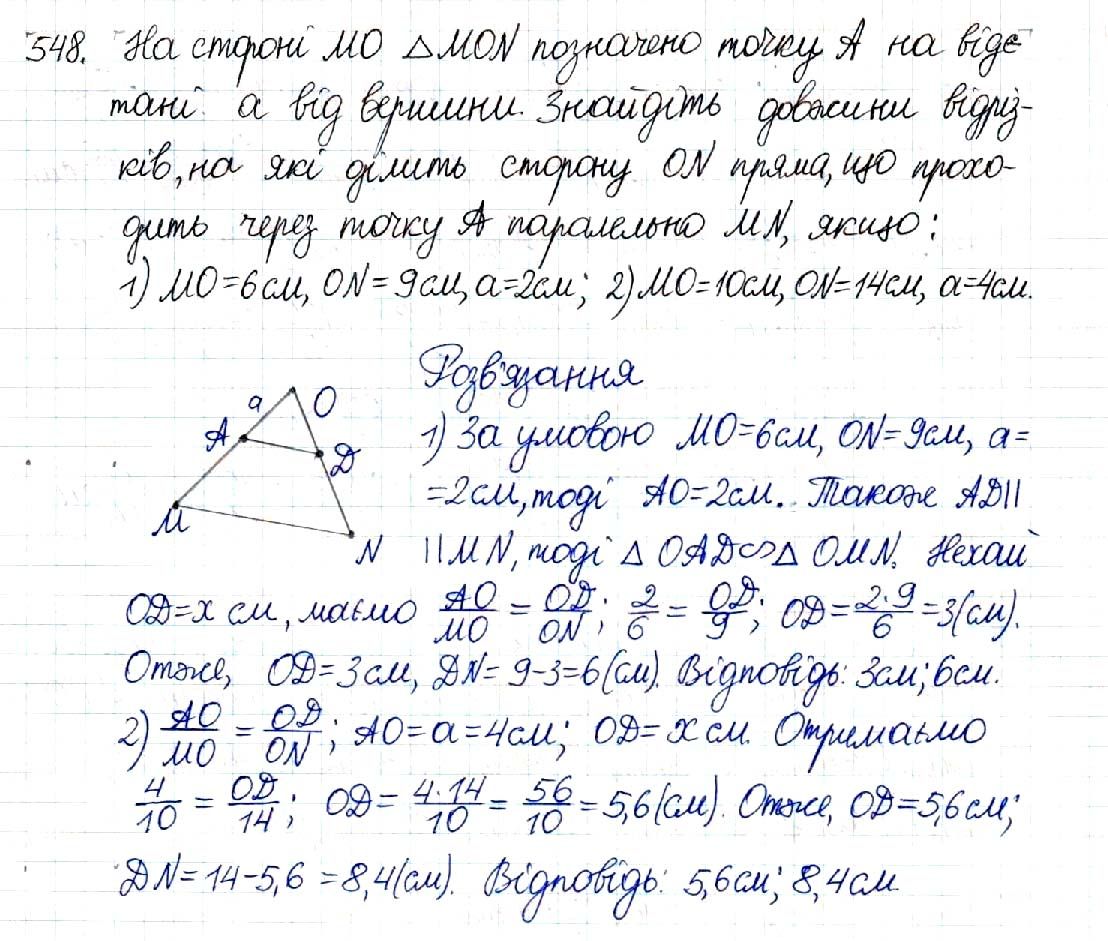 548. На стороні MO △MON позначено точку A на відс
тані a від вершини. Знайдіть довжини відріз-
ків, на які ділить сторону ON пряма, що прохо-
дить через точку A паралельно MN, якщо:
1) MO=6см, ON=9см, a=2см; 2) MO=10см, ON=14см, a=4см.
Розв'язання
a O
A
D
M
N
1) За умовою MO=6см, ON=9см, a=
=2см, тоді AO=2см. Також AD||
||MN, тоді △ OAD∽△ OMN. Нехай
OD=x см, маємо AO/MO = OD/ON; 2/6 = OD/9; OD= 2·9/6 =3(см).
Отже, OD=3см, DN= 9-3=6(см). Відповідь: 3см; 6см.
2) AO/MO = OD/ON; AO=a=4см; OD=x см. Отримаємо
4/10 = OD/14; OD= 4·14/10 = 56/10 =5,6(см). Отже, OD=5,6см;
DN=14-5,6=8,4(см). Відповідь: 5,6см; 8,4см